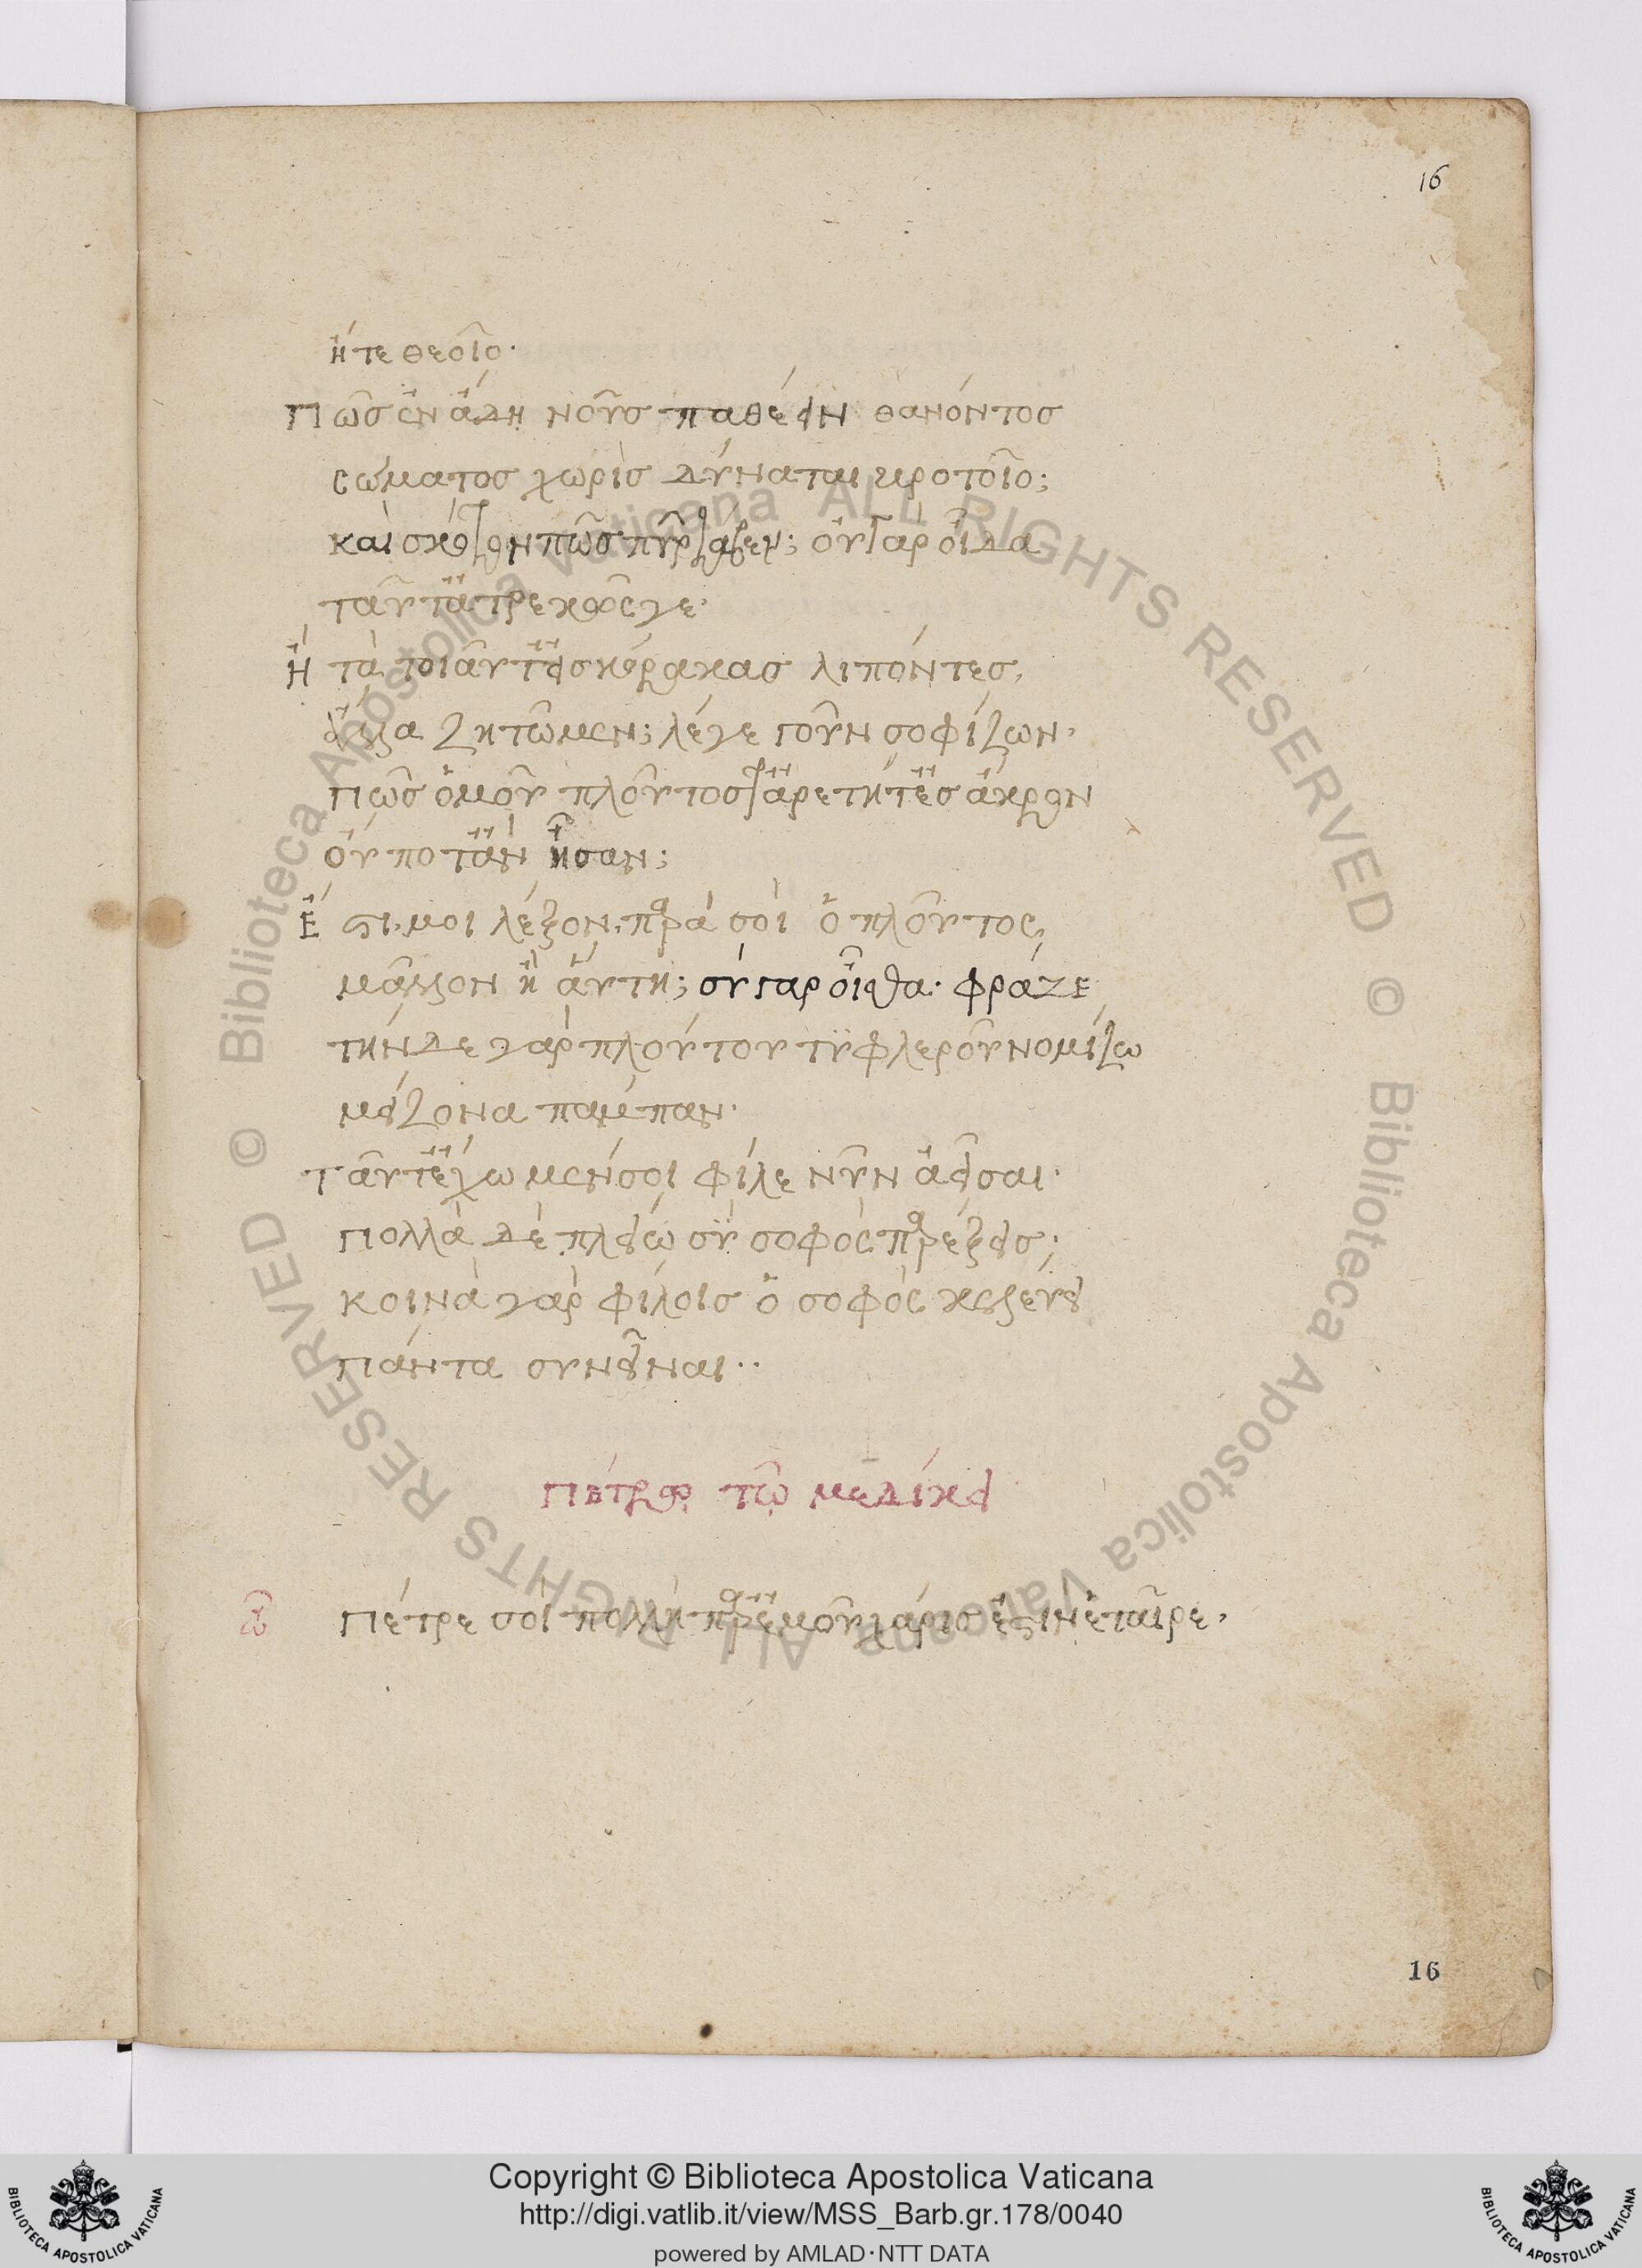 16
ἠΰτε θεοῖο·
Πῶς ἐν ἅδῃ νοῦς παθέειν θανόντος
σώματος χωρὶς δύναται κροτοῖο;
καὶ πῶς πῦρ οὐ γὰρ οἶδα
ταῦτ' ἀτρεκῶς γε·
Ἢ τὰ τοιαῦτ' ἐς κόρακας λιπόντες,
ἄλλα ζητῶμεν; λέγε γοῦν σοφίζων·
πῶς ὁμοῦ πλοῦτος ἀρετή τ' ἐς ἄκρον
οὔποτ' ἂν ἦσαν;
Ἔστι μοι λέξον, παρὰ σοὶ ὁ πλοῦτος,
μᾶλλον ἢ αὐτή; σὺ γὰρ οἶσθα· φράζε
τήνδε γὰρ πλούτου τυφλεροῦ νομίζω
μείζονα πάμπαν·
Ταῦτ' ἔχωμέν σοι φίλε νῦν ἀεῖσαι·
πολλὰ δὲ πλείω σὺ σοφὸς παρέξεις;
κοινὰ γὰρ φίλοις ὁ σοφὸς κελεύει
πάντα συνεῖναι··
Πέτρῳ τῷ μεδίκει
ὦ Πέτρε σοὶ πολλὴ παρ' ἐμοῦ χάρις ἐστὶν ἑταῖρε,
16
Copyright © Biblioteca Apostolica Vaticana
http://digi.vatlib.it/view/MSS_Barb.gr.178/0040
powered by AMLAD·NTT DATA
BIBLIOTECA APOSTOLICA VATICANA
BIBLIOTECA APOSTOLICA VATICANA
© Biblioteca Apostolica Vaticana ALL RIGHTS RESERVED © Biblioteca Apostolica Vaticana ALL RIGHTS RESERVED